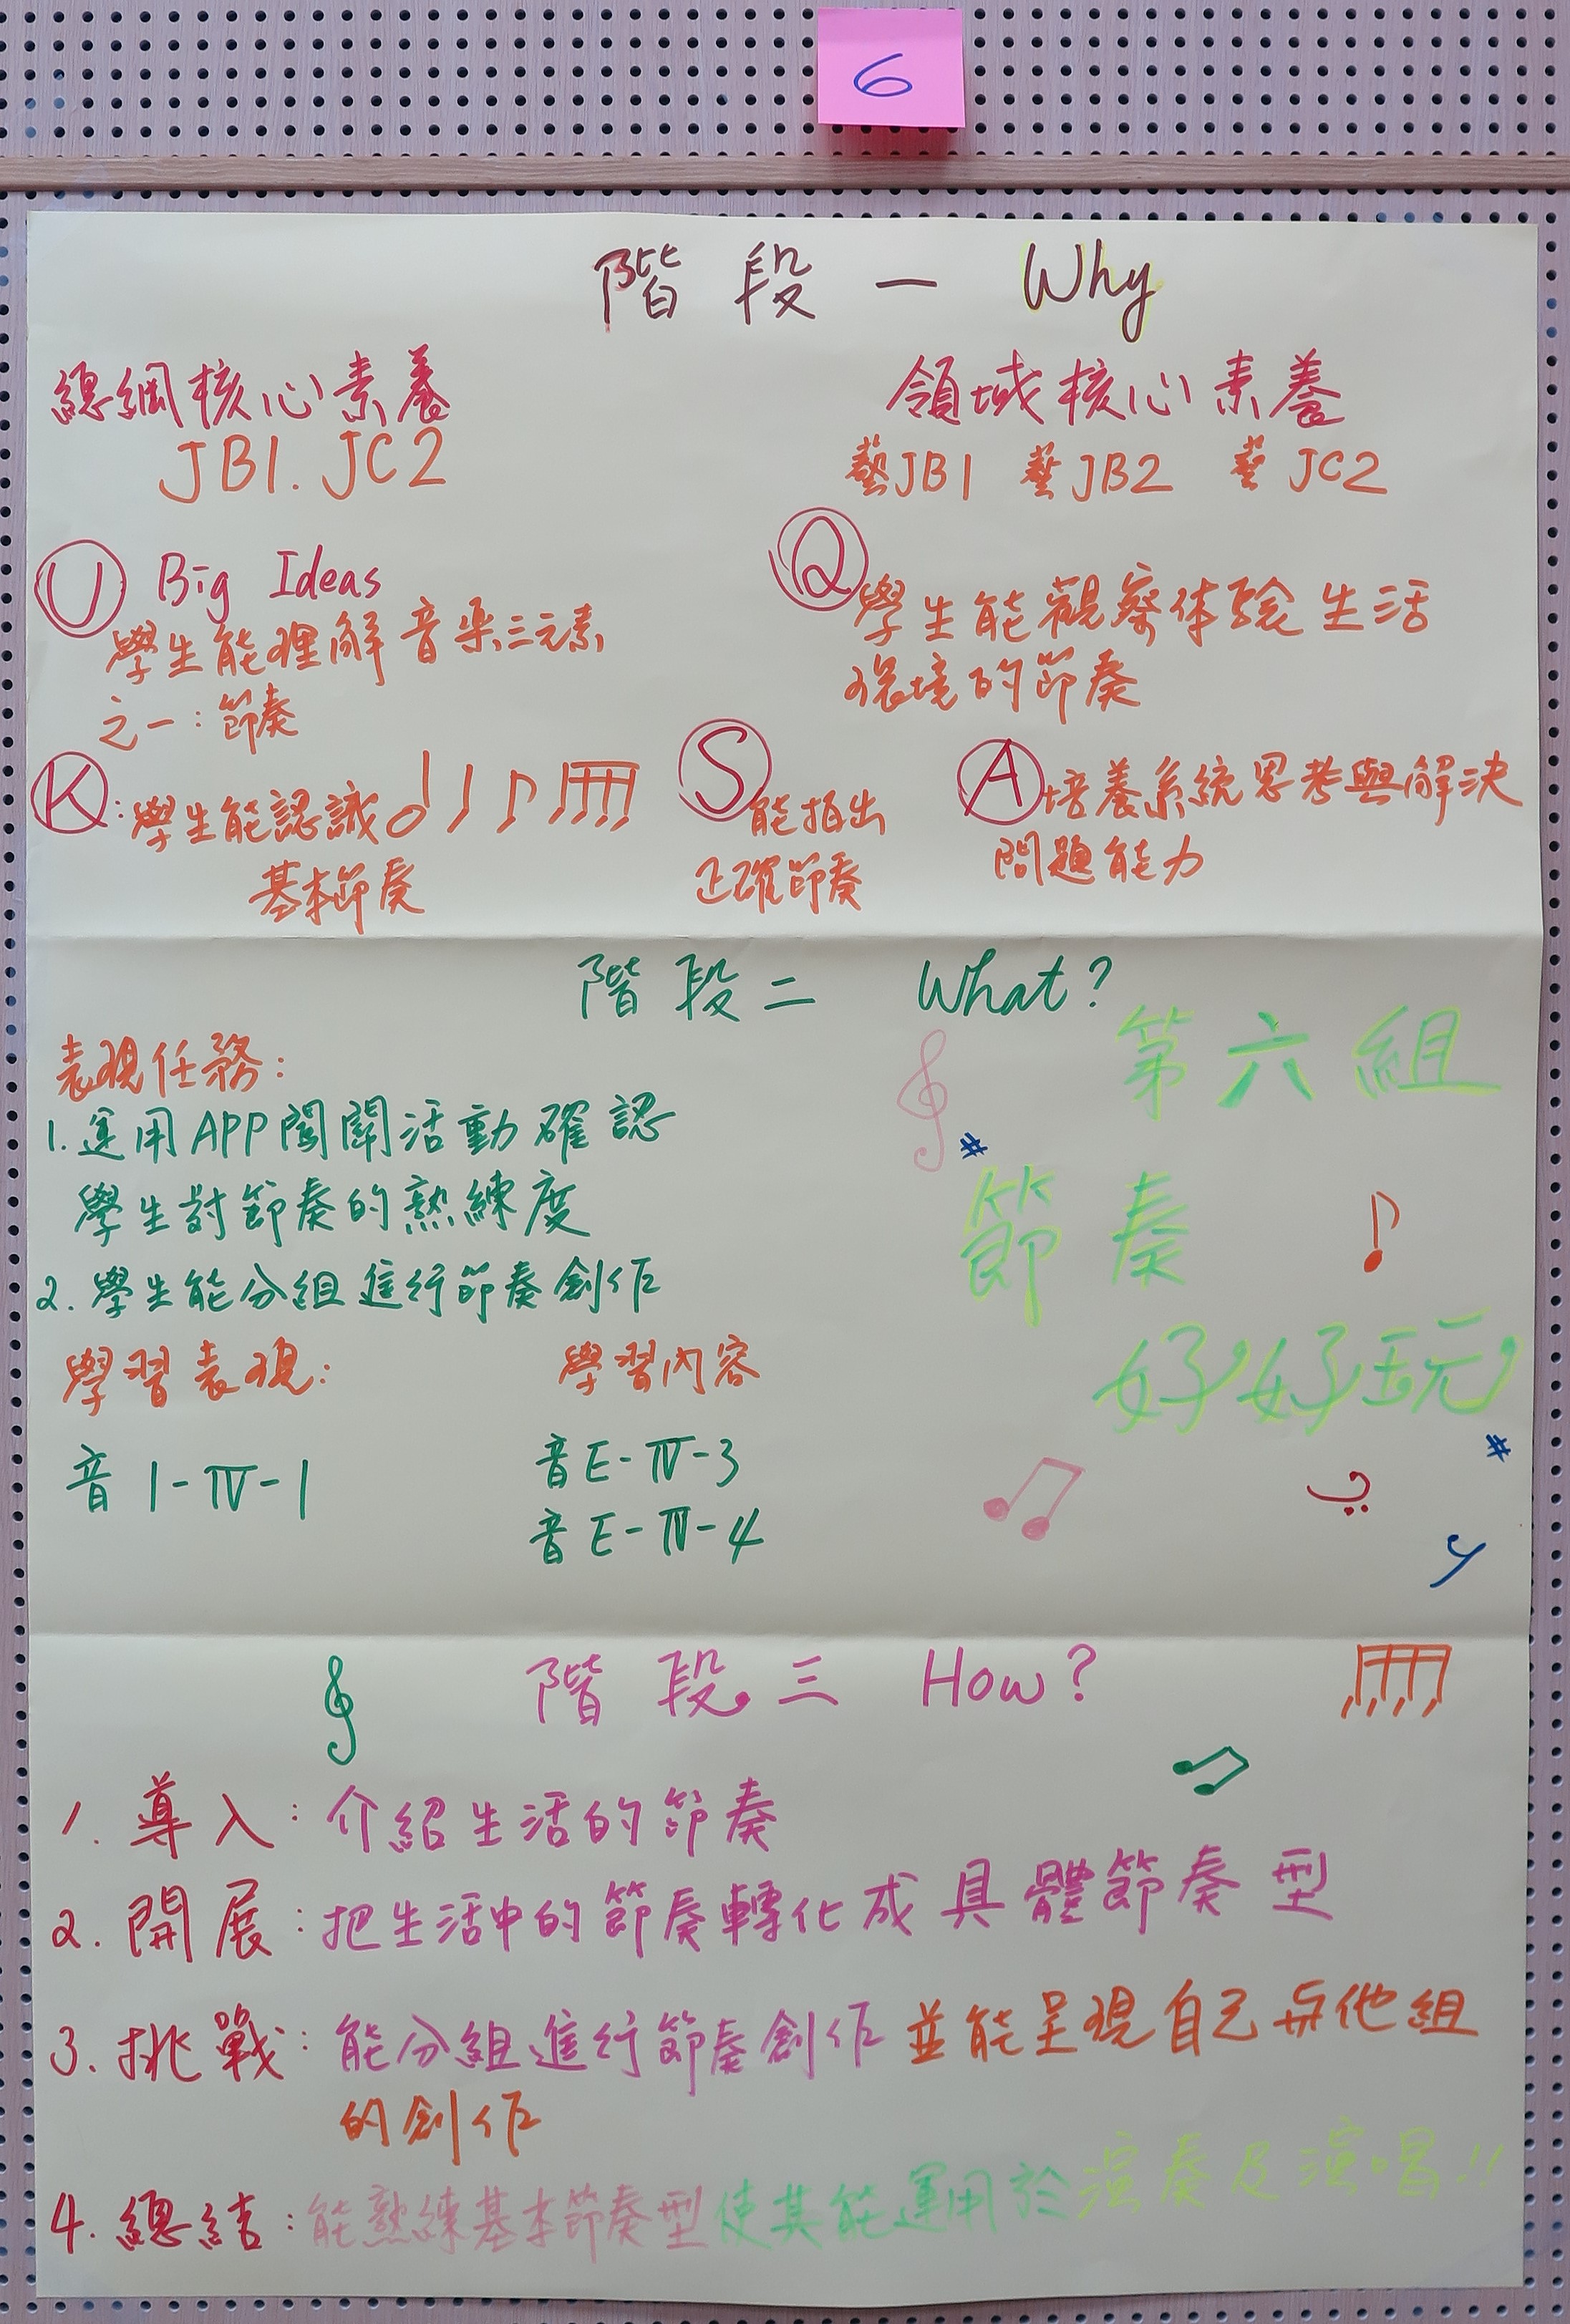 6
階段一 Why
總綱核心素養
JB1. JC2
領域核心素養
藝JB1 藝JB2 藝JC2
U Big Ideas
學生能理解音樂三元素
之一：節奏
Q 學生能觀察体驗生活
環境的節奏
K：學生能認識
基本節奏
S 能拍出
正確節奏
A 培養系統思考與解決
問題能力
階段二 What?
第六組
節奏
好好玩
表現任務：
1. 運用APP闖關活動確認
學生對節奏的熟練度
2. 學生能分組進行節奏創作
學習表現：
音1-IV-1
學習內容
音E-IV-3
音E-IV-4
階段三 How?
1. 導入：介紹生活的節奏
2. 開展：把生活中的節奏轉化成具體節奏型
3. 挑戰：能分組進行節奏創作並能呈現自己与他組
的創作
4. 總結：能熟練基本節奏型使其能運用於演奏及演唱!!